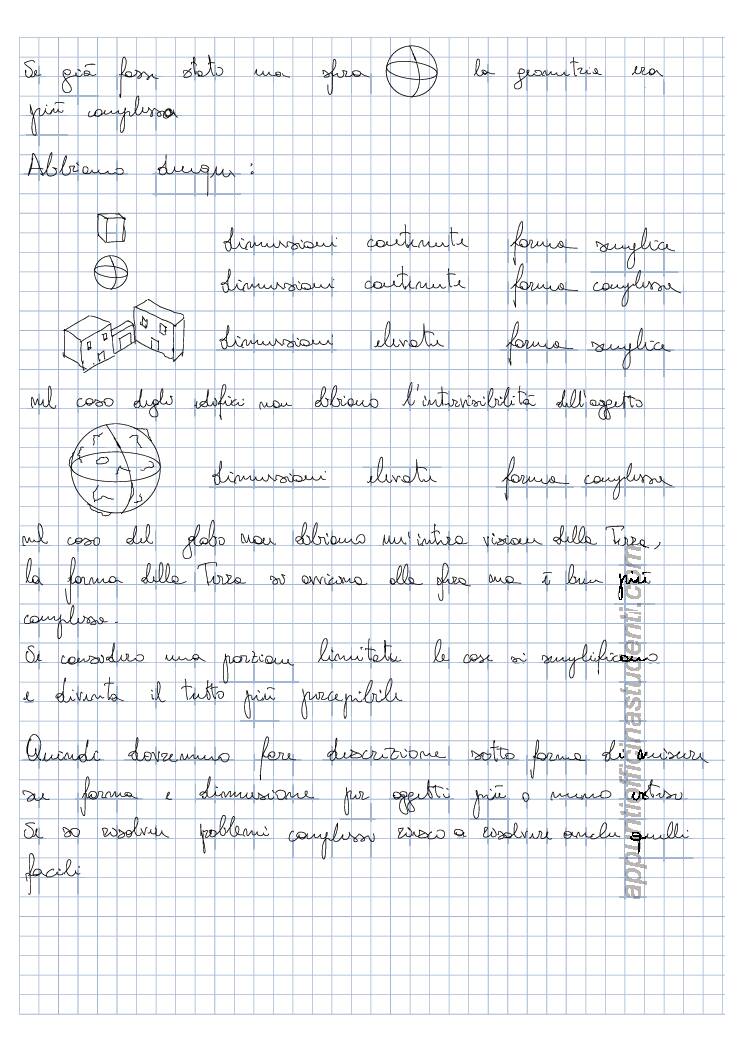 Se già fosse stato una sfera la geometria era
più complessa
Abbiamo dunque:
dimensioni contenute forma semplice
dimensioni contenute forma complessa
dimensioni elevate forma semplice
nel caso degli edifici non abbiamo l'intervisibilità dell'oggetto
dimensioni elevate forma complessa
nel caso del globo non abbiamo un'intera visione della Terra,
la forma della Terra si avvicina alla sfera ma è ben più
complessa.
Se considero una porzione limitata le cose si semplificano
e diventa il tutto più percepibile
Quindi dovremmo fare descrizione sotto forma di misure
su forma e dimensione per oggetti più o meno estesi
Se so risolvere problemi complessi riesco a risolvere anche quelli
facili
appuntiofficinastudenti.com